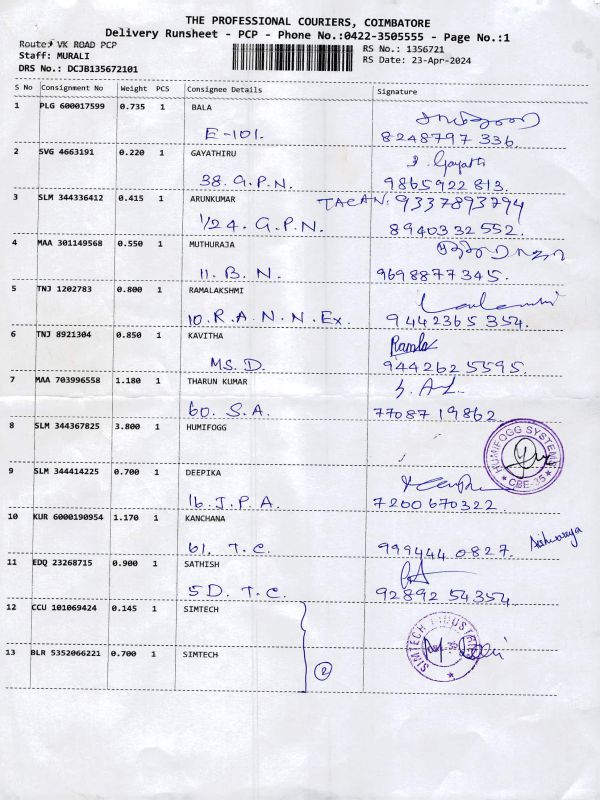 THE PROFESSIONAL COURIERS, COIMBATORE
Delivery Runsheet - PCP - Phone No.:0422-3505555 - Page No.:1
Route: VK ROAD PCP
Staff: MURALI
DRS No.: DCJB135672101
RS No.: 1356721
RS Date: 23-Apr-2024
S No Consignment No Weight PCS Consignee Details Signature
1 PLG 600017599 0.735 1 BALA
E-101. 8248797 336.
2 SVG 4663191 0.220 1 GAYATHIRU
38. G.P.N. 9865922 813.
3 SLM 344336412 0.415 1 ARUNKUMAR 9337893794
1/24. G.P.N. 8940332 552.
4 MAA 301149568 0.550 1 MUTHURAJA
11. B. N. 9698877345.
5 TNJ 1202783 0.800 1 RAMALAKSHMI
10. R. A. N. N. Ex. 9442365 354.
6 TNJ 8921304 0.850 1 KAVITHA
MS. D. 9442625595.
7 MAA 703996558 1.180 1 THARUN KUMAR
60. S. A. 77087 19862.
8 SLM 344367825 3.800 1 HUMIFOGG
HUMIFOGG SYSTEMS
CBE-35
9 SLM 344414225 0.700 1 DEEPIKA
16. J. P. A. 7200670322
10 KUR 6000190954 1.170 1 KANCHANA
61. T. C. 999444 0827. Aishwarya
11 EDQ 23268715 0.900 1 SATHISH
5D. T. C. 92892 54354
12 CCU 101069424 0.145 1 SIMTECH
SIMTECH INDUSTRIES
13 BLR 5352066221 0.700 1 SIMTECH
2